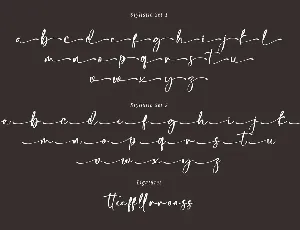 Stylistic Set 1
a b c d e f g h i j k l
m n o p q r s t u
v w x y z
Stylistic Set 2
a b c d e f g h i j k
m n o p q r s t u
v w x y z
Ligatures